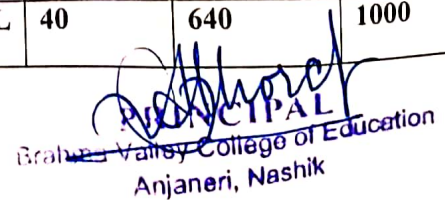 L 40 640 1000
PRINCIPAL
Brahma Valley College of Education
Anjaneri, Nashik